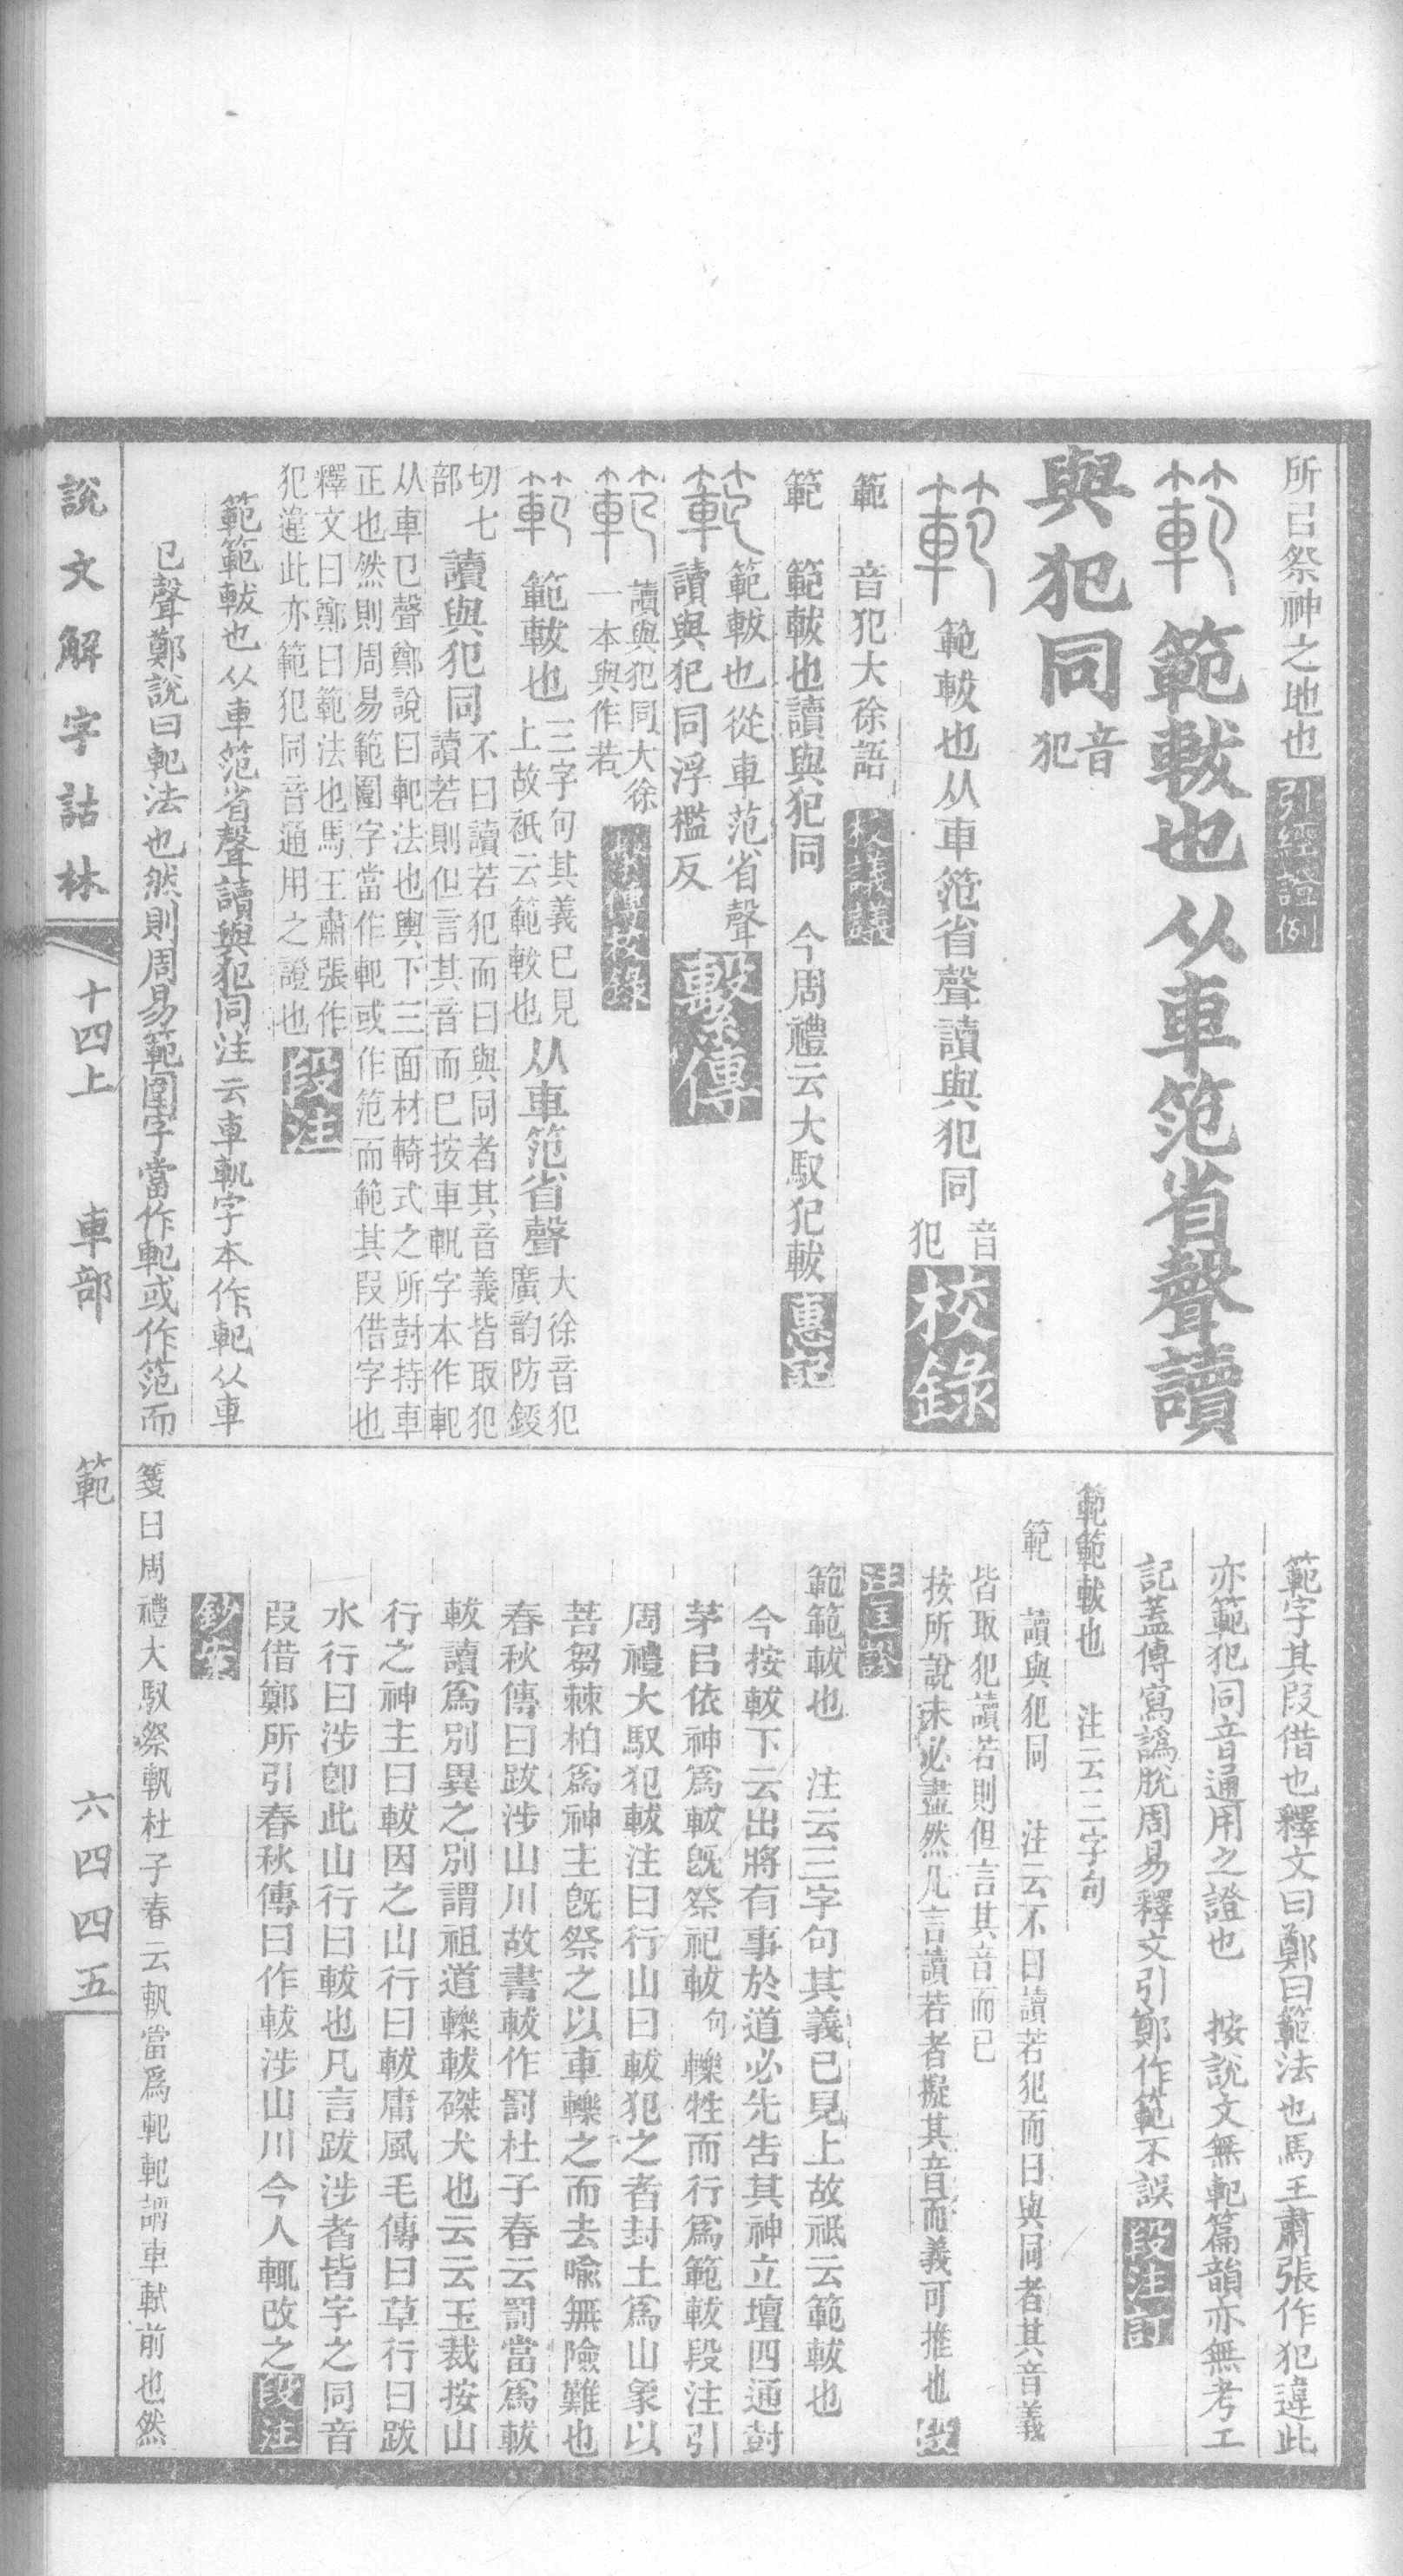 所㠯祭神之地也 引經證例
範 範軷也从車笵省聲讀
與犯同 音犯
範 範軷也从車笵省聲讀與犯同 音犯 校錄
範 音犯大徐語 校議議
範 範軷也讀與犯同 今周禮云大馭犯軷 惠記
範 範軷也從車范省聲
讀與犯同浮檻反 繫傳
範 讀與犯同大徐
一本與作若 繫傳校錄
範 範軷也 三字句其義已見
上故祇云範軷也 从車笵省聲 大徐音犯
廣韵防錽
切七
部 讀與犯同 不曰讀若犯而曰與同者其音義皆取犯
讀若則但言其音而已按車軓字本作軋
从車㔾聲鄭說曰軓法也輿下三面材輢式之所尌持車
正也然則周易範圍字當作軓或作笵而範其叚借字也
釋文曰鄭曰範法也馬王肅張作
犯違此亦範犯同音通用之證也 段注
範範軷也从車笵省聲讀與犯同注云車軓字本作軓从車
㔾聲鄭說曰軓法也然則周易範圍字當作軓或作笵而
範字其叚借也釋文曰鄭曰範法也馬王肅張作犯違此
亦範犯同音通用之證也 按說文無軓篇韻亦無考工
記蓋傳寫譌脫周易釋文引鄭作範不誤 段注訂
範範軷也 注云三字句
範 讀與犯同 注云不曰讀若犯而曰與同者其音義
皆取犯讀若則但言其音而已
按所說未必盡然凡言讀若者擬其音而義可推也 段
注匡謬
範範軷也 注云三字句其義已見上故祇云範軷也
今按軷下云出將有事於道必先告其神立壇四通尌
茅㠯依神爲軷旣祭祀軷句轢牲而行爲範軷段注引
周禮大馭犯軷注曰行山曰軷犯之者封土爲山象以
菩芻棘柏爲神主旣祭之以車轢之而去喻無險難也
春秋傳曰跋涉山川故書軷作罰杜子春云罰當爲軷
軷讀爲別異之別謂祖道轢軷磔犬也云云玉裁按山
行之神主曰軷因之山行曰軷庸風毛傳曰草行曰跋
水行曰涉卽此山行曰軷也凡言跋涉者皆字之同音
叚借鄭所引春秋傳曰作軷涉山川今人輒改之 段注
鈔案
箋曰周禮大馭祭軓杜子春云軓當爲軓軓謂車軾前也然
說文解字詁林 十四上 車部 範 六四四五